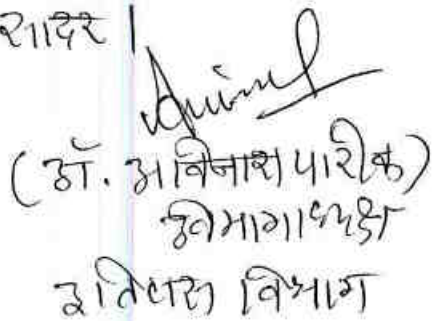 सादर |
(डॉ. अविनाश पारीक)
विभागाध्यक्ष
इतिहास विभाग